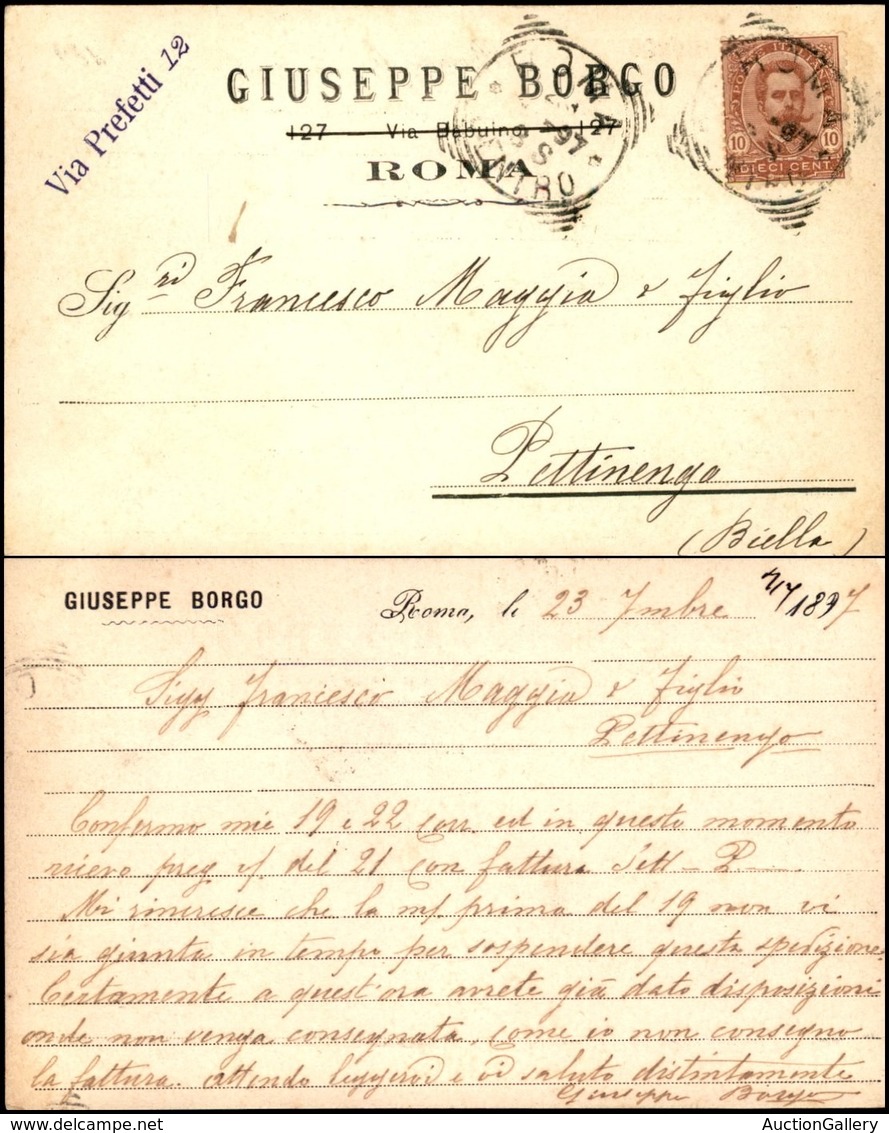 Via Prefetti 12
GIUSEPPE BORGO
127 Via Babuino 127
ROMA
ROMA
97
CENTRO
10 10
DIECI CENT
Sig.ri Francesco Maggia e figlio
Pettinengo
(Biella)
GIUSEPPE BORGO
Roma, li 23 7mbre 1897
Sigg Francesco Maggia e Figlio
Pettinengo
Confermo mie 19 e 22 corr ed in questo momento
ricevo preg v/. del 21 con fattura
Mi rincresce che la m/ prima del 19 non vi
sia giunta in tempo per sospendere questa spedizione.
Certamente a quest'ora avrete già dato disposizioni
onde non venga consegnata, come io non consegno
la fattura. Attendo leggervi e vi saluto distintamente
Giuseppe Borgo
AuctionGallery